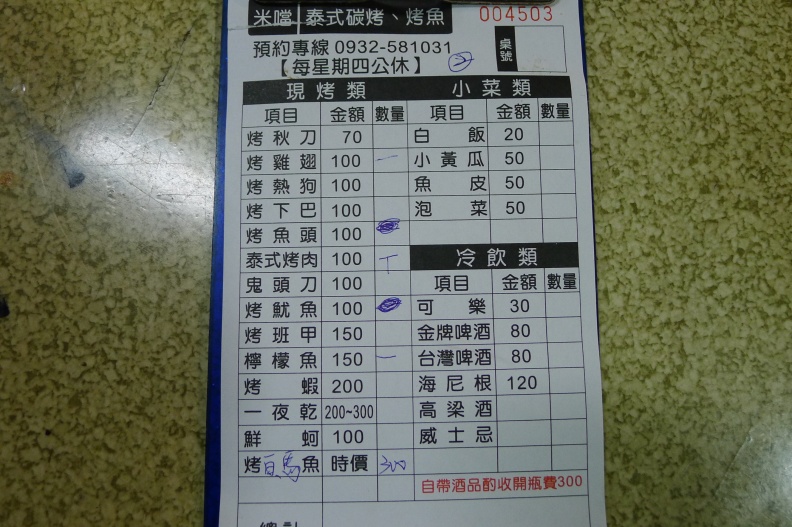 米噹 泰式碳烤、烤魚 004503
預約專線 0932-581031 桌號
【每星期四公休】 2
現烤類 小菜類
項目 金額 數量 項目 金額 數量
烤秋刀 70 白飯 20
烤雞翅 100 一 小黃瓜 50
烤熱狗 100 魚皮 50
烤下巴 100 泡菜 50
烤魚頭 100
泰式烤肉 100 丅 冷飲類
鬼頭刀 100 項目 金額 數量
烤魷魚 100 可樂 30
烤班甲 150 金牌啤酒 80
檸檬魚 150 一 台灣啤酒 80
烤蝦 200 海尼根 120
一夜乾 200~300 高梁酒
鮮蚵 100 威士忌
烤白馬魚 時價 300
自帶酒品酌收開瓶費300